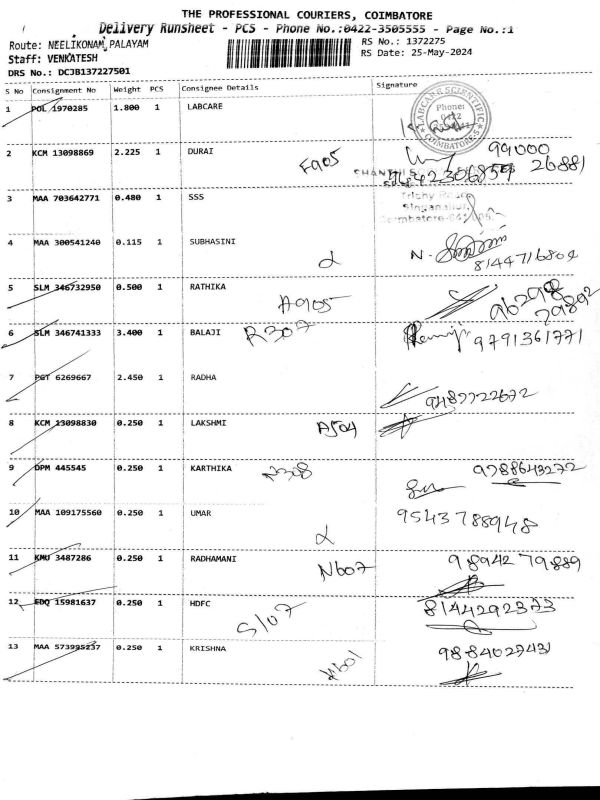 THE PROFESSIONAL COURIERS, COIMBATORE
Delivery Runsheet - PCS - Phone No.:0422-3505555 - Page No.:1
Route: NEELIKONAM,PALAYAM
RS No.: 1372275
Staff: VENKATESH
RS Date: 25-May-2024
DRS No.: DCJB137227501
S No Consignment No Weight PCS Consignee Details Signature
1 POL 1970285 1.800 1 LABCARE
LABCARE SCIENTIFIC
Phone:
0422
COIMBATORE
2 KCM 13098869 2.225 1 DURAI F905 99000
26881
9442306859
3 MAA 703642771 0.480 1 SSS
Trichy Road
Singanallur,
Coimbatore-641 005.
4 MAA 300541240 0.115 1 SUBHASINI
N.
8144716804
5 SLM 346732950 0.500 1 RATHIKA A905 96298
79892
6 SLM 346741333 3.400 1 BALAJI R307 9791361771
7 PGT 6269667 2.450 1 RADHA
9487722672
8 KCM 13098830 0.250 1 LAKSHMI A504
9 DPM 445545 0.250 1 KARTHIKA N308 9788643272
10 MAA 109175560 0.250 1 UMAR 9543788948
11 KMU 3487286 0.250 1 RADHAMANI N607 98942 79889
12 EDQ 15981637 0.250 1 HDFC S107 8144292373
13 MAA 573995237 0.250 1 KRISHNA 9884029431